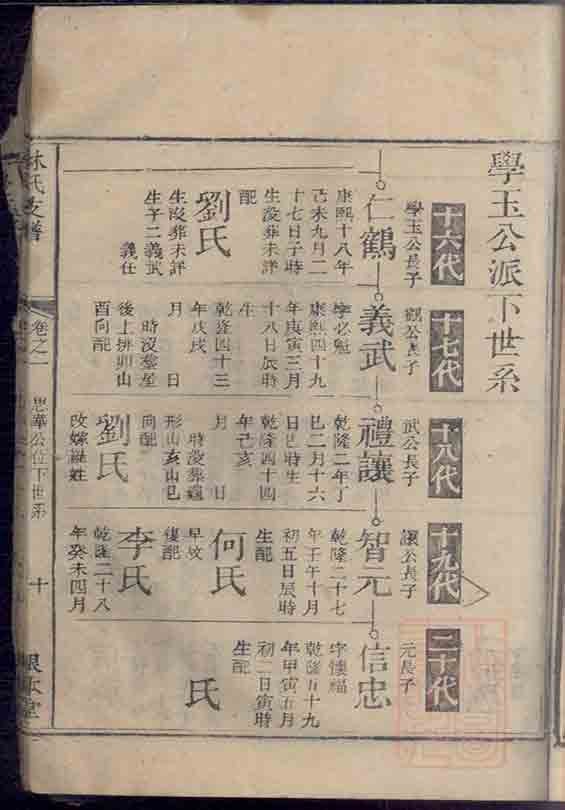 學玉公派下世系
十六代
學玉公長子
仁鶴
康熙十八年
己未九月二
十七日子時
生沒葬未詳
配
劉氏
生沒葬未詳
生子二義武
義仕
十七代
觀公長子
義武
字必魁
康熙四十九
年庚寅三月
十八日辰時
生
乾隆四十三
年戊戌
月 日
時沒塋
後上排卯山
酉向配
十八代
武公長子
禮讓
乾隆二年丁
巳二月十六
日巳時生
乾隆四十四
年己亥
月 日
時沒葬
形山亥山巳
向配
劉氏
改嫁 姓
十九代
讓公長子
智元
乾隆二十七
年壬午十月
初五日辰時
生配
何氏
早歿
復配
李氏
乾隆二十八
年癸未四月
二十代
元長子
信忠
字 福
乾隆五十九
年甲寅五月
初二日寅時
生配
氏
林氏支譜
卷之二
思華公位下世系
十